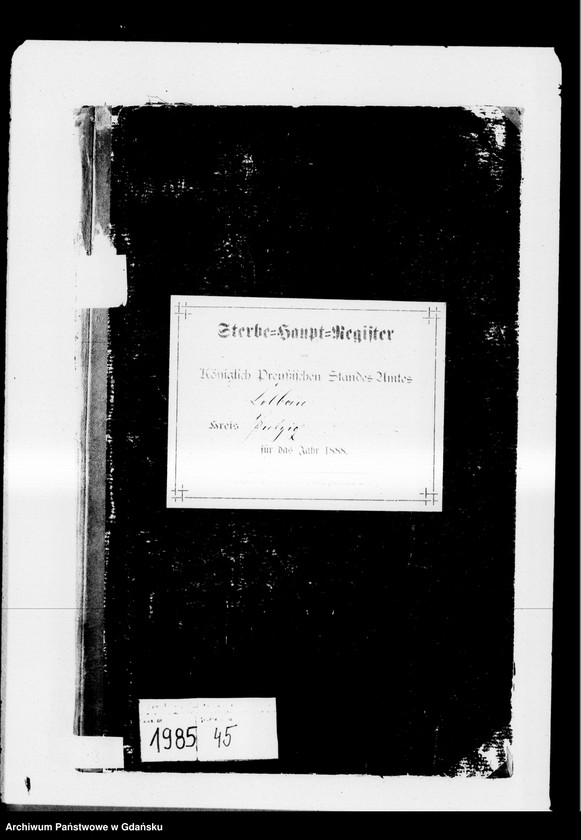 Sterbe=Haupt=Register
Königlich Preußischen Standes-Amtes
Kreis Putzig
für das Jahr 1888.
1985 45
Archiwum Państwowe w Gdańsku